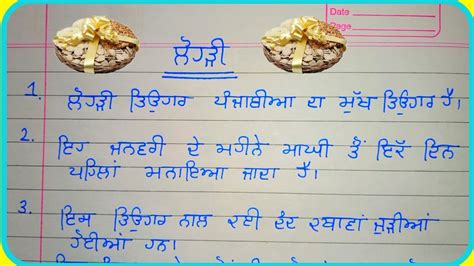 Date
Page
ਲੋਹੜੀ
1. ਲੋਹੜੀ ਤਿਉਹਾਰ ਪੰਜਾਬੀਆ ਦਾ ਮੁੱਖ ਤਿਉਹਾਰ ਹੈ।
2. ਇਹ ਜਨਵਰੀ ਦੇ ਮਹੀਨੇ ਮਾਘੀ ਤੋਂ ਇੱਕ ਦਿਨ
ਪਹਿਲਾਂ ਮਨਾਇਆ ਜਾਂਦਾ ਹੈ।
3. ਇਸ ਤਿਉਹਾਰ ਨਾਲ ਕਈ ਦੰਦ ਕਥਾਵਾਂ ਜੁੜੀਆਂ
ਹੋਈਆਂ ਹਨ।